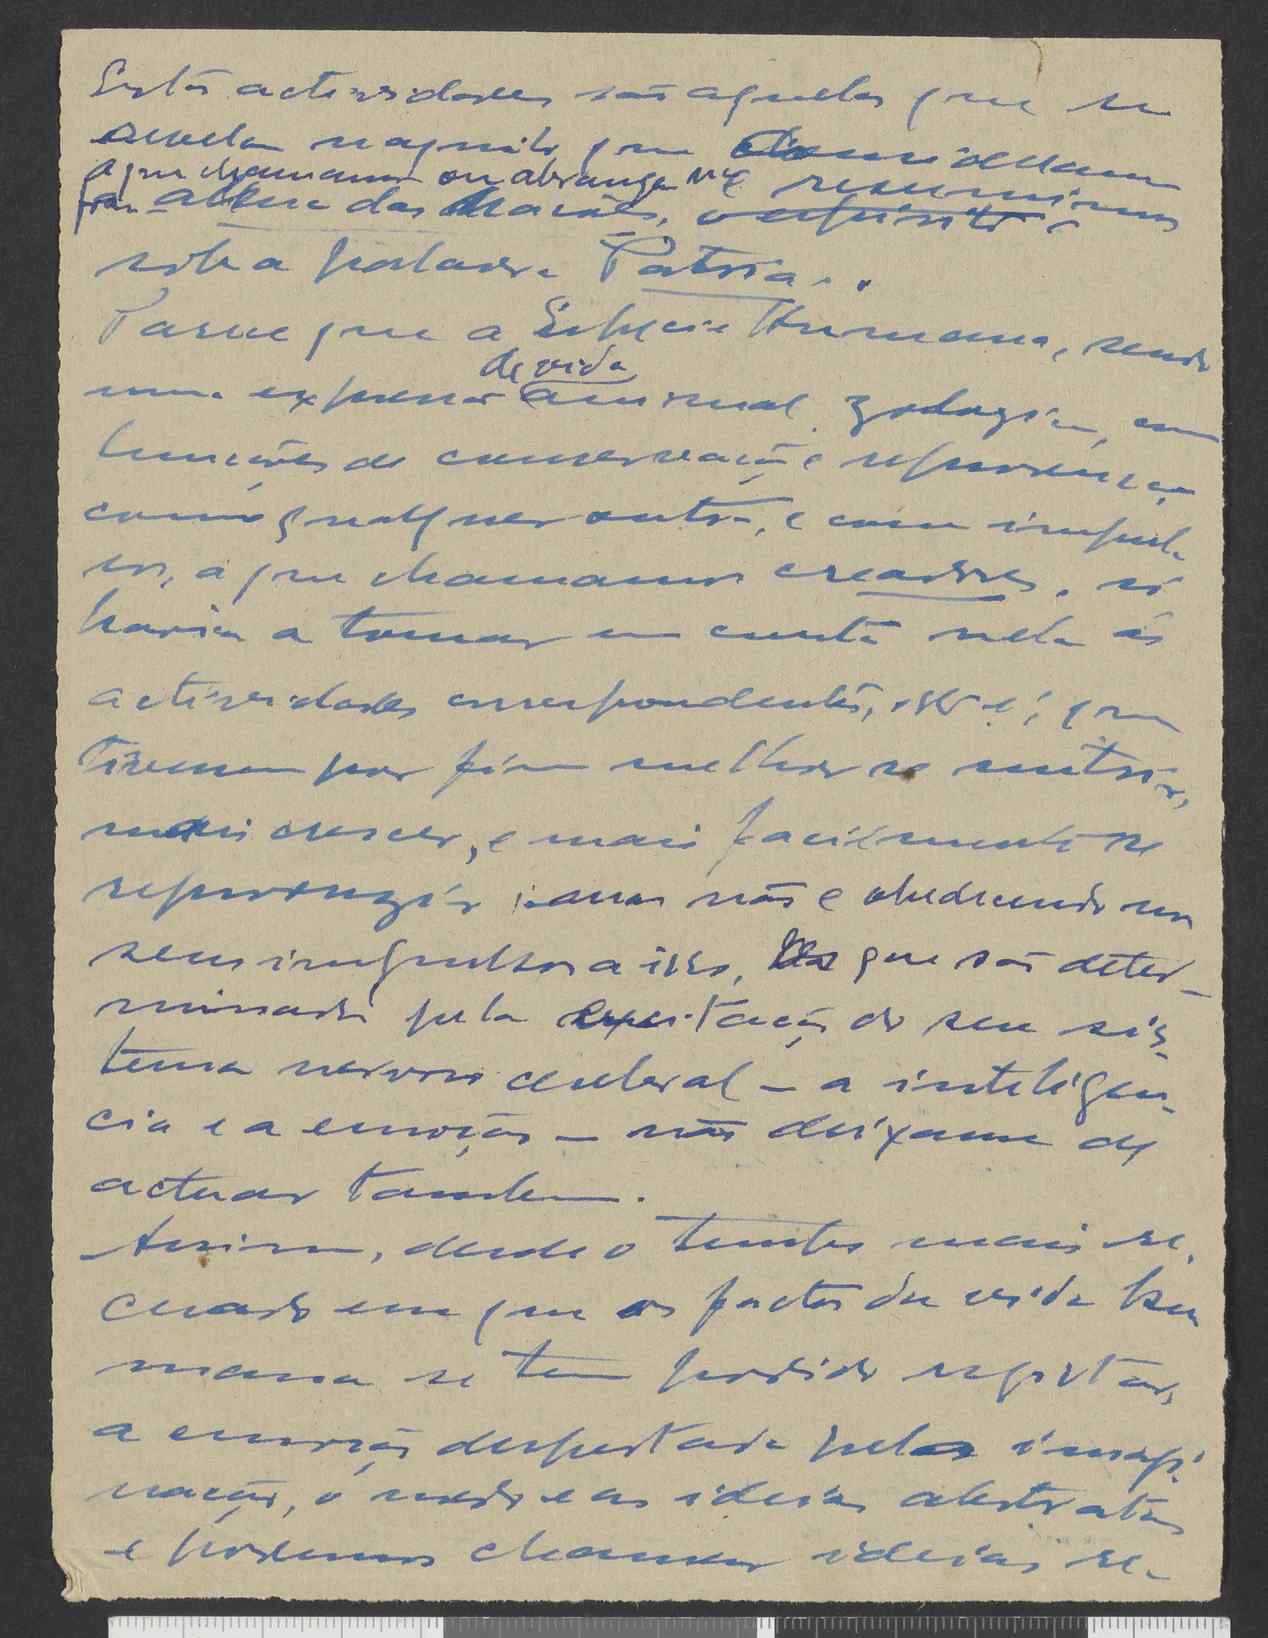 Estas actividades são aquelas que se
revela naquilo que consideram
a que chamamos ou abrange nos resumimos
alma das Nações, o espirito
sob a palavra Patria..
Parece que a Espécie Humana, sendo
uma expressão de vida animal zoologica, com
funções de conservação e reprodução
como qualquer outra, e com impul-
sos, a que chamamos creadores, só
havia a tomar em conta nela as
actividades correspondentes, isto é, que
tivessem por fim melhor se nutrir,
mais crescer, e mais facilmente se
reproduzir; mas não é obedecendo
seus impulsos a isso, que são deter-
minados pela excitação do seu sis-
tema nervoso cerebral – a inteligen-
cia e a emoção – não deixam de
actuar tambem.
Assim, desde o tempo mais re-
cuado em que os factos da vida hu
mana se tem podido registar,
a emoção despertada pela imagi-
nação, o medo e as ideias abstratas
e podemos chamar ideias re-